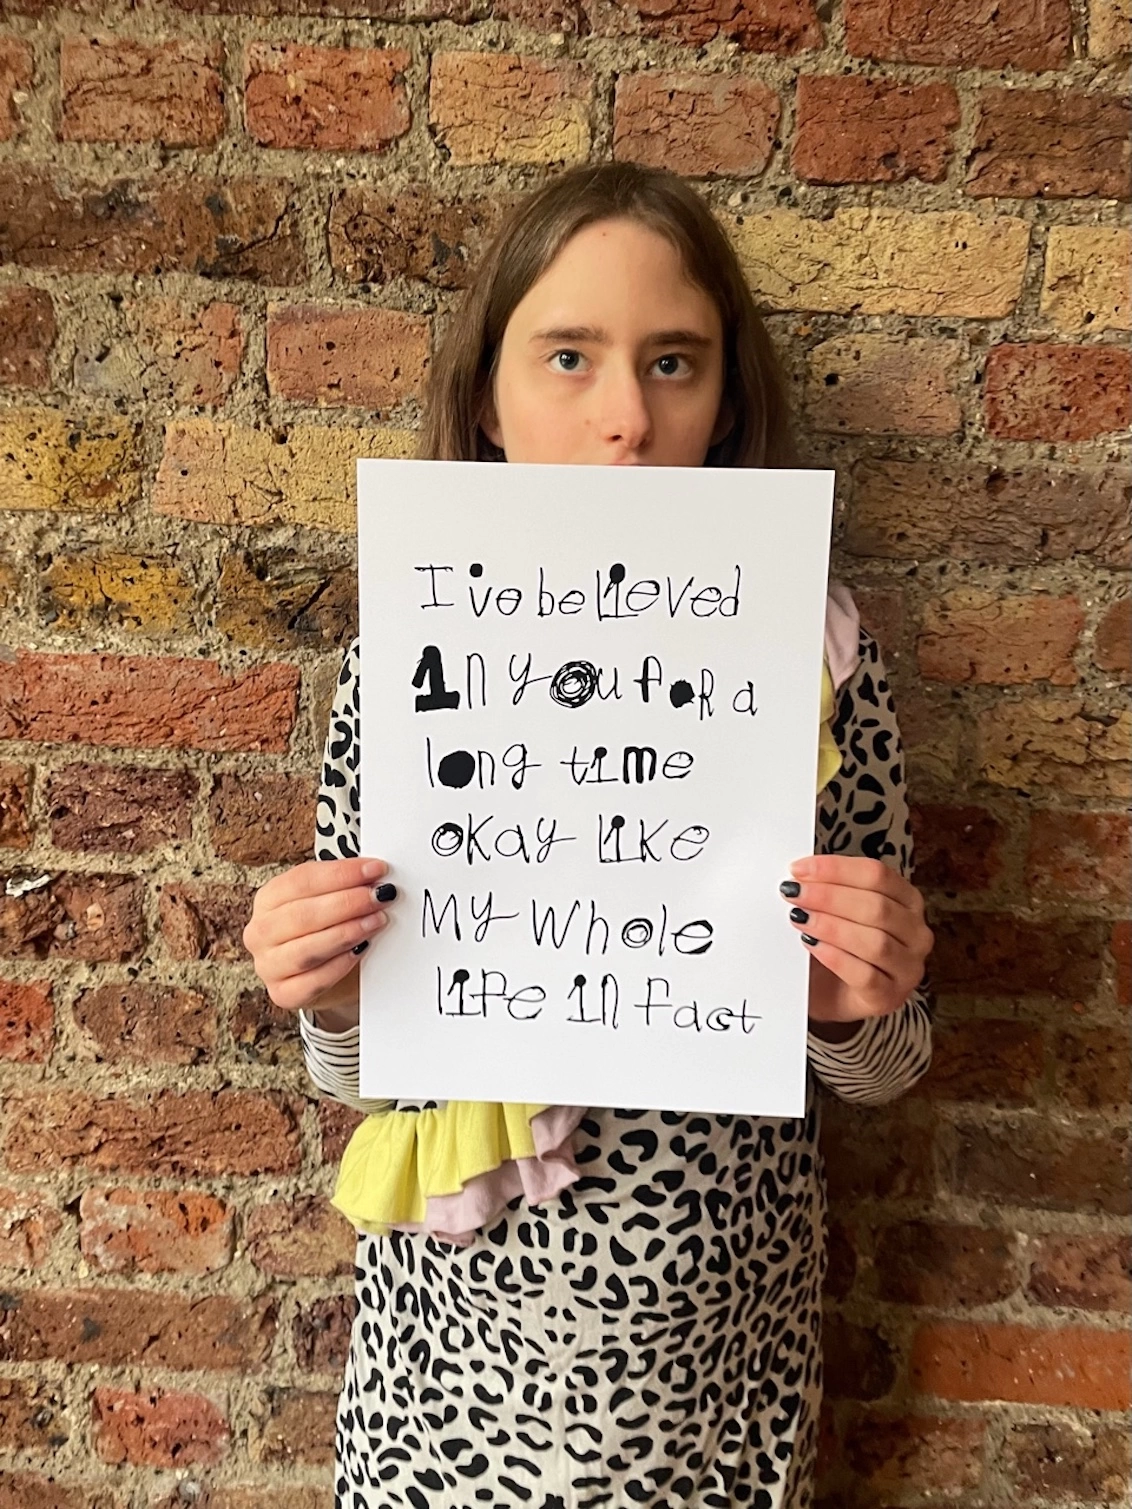 I've believed
in you foR a
long time
okay like
My Whole
life in fact